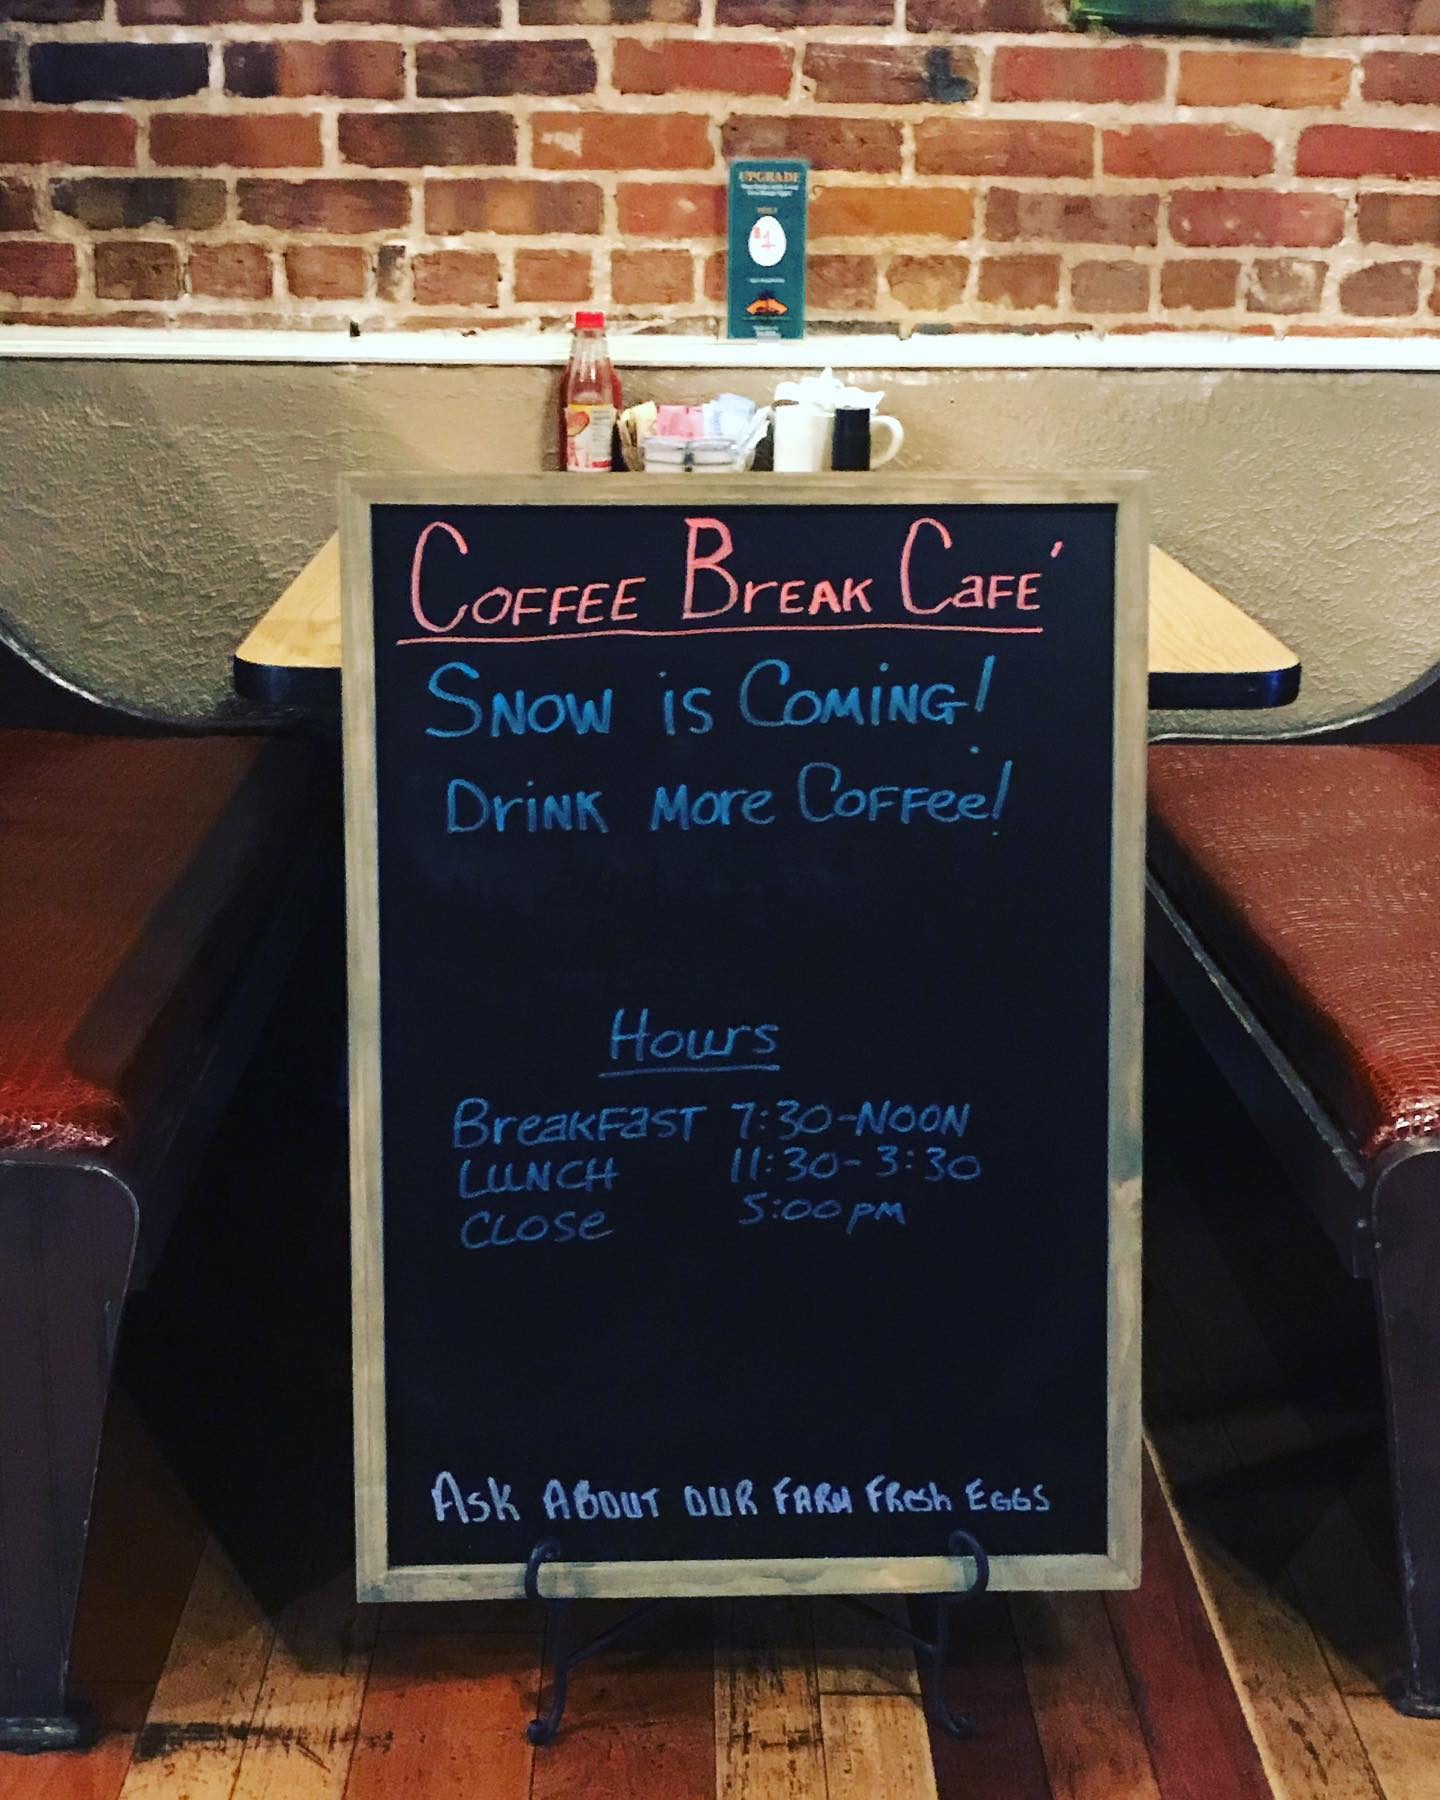 UPGRADE
$1
COFFEE BreAK CaFE'
SNOW is COMiNG!
DriNK More COFFee!
Hours
BreaKFaST 7:30-NOON
LUNCH 11:30-3:30
CLOSe 5:00 PM
ASK ABOUT OUR FARM FResh EGGS